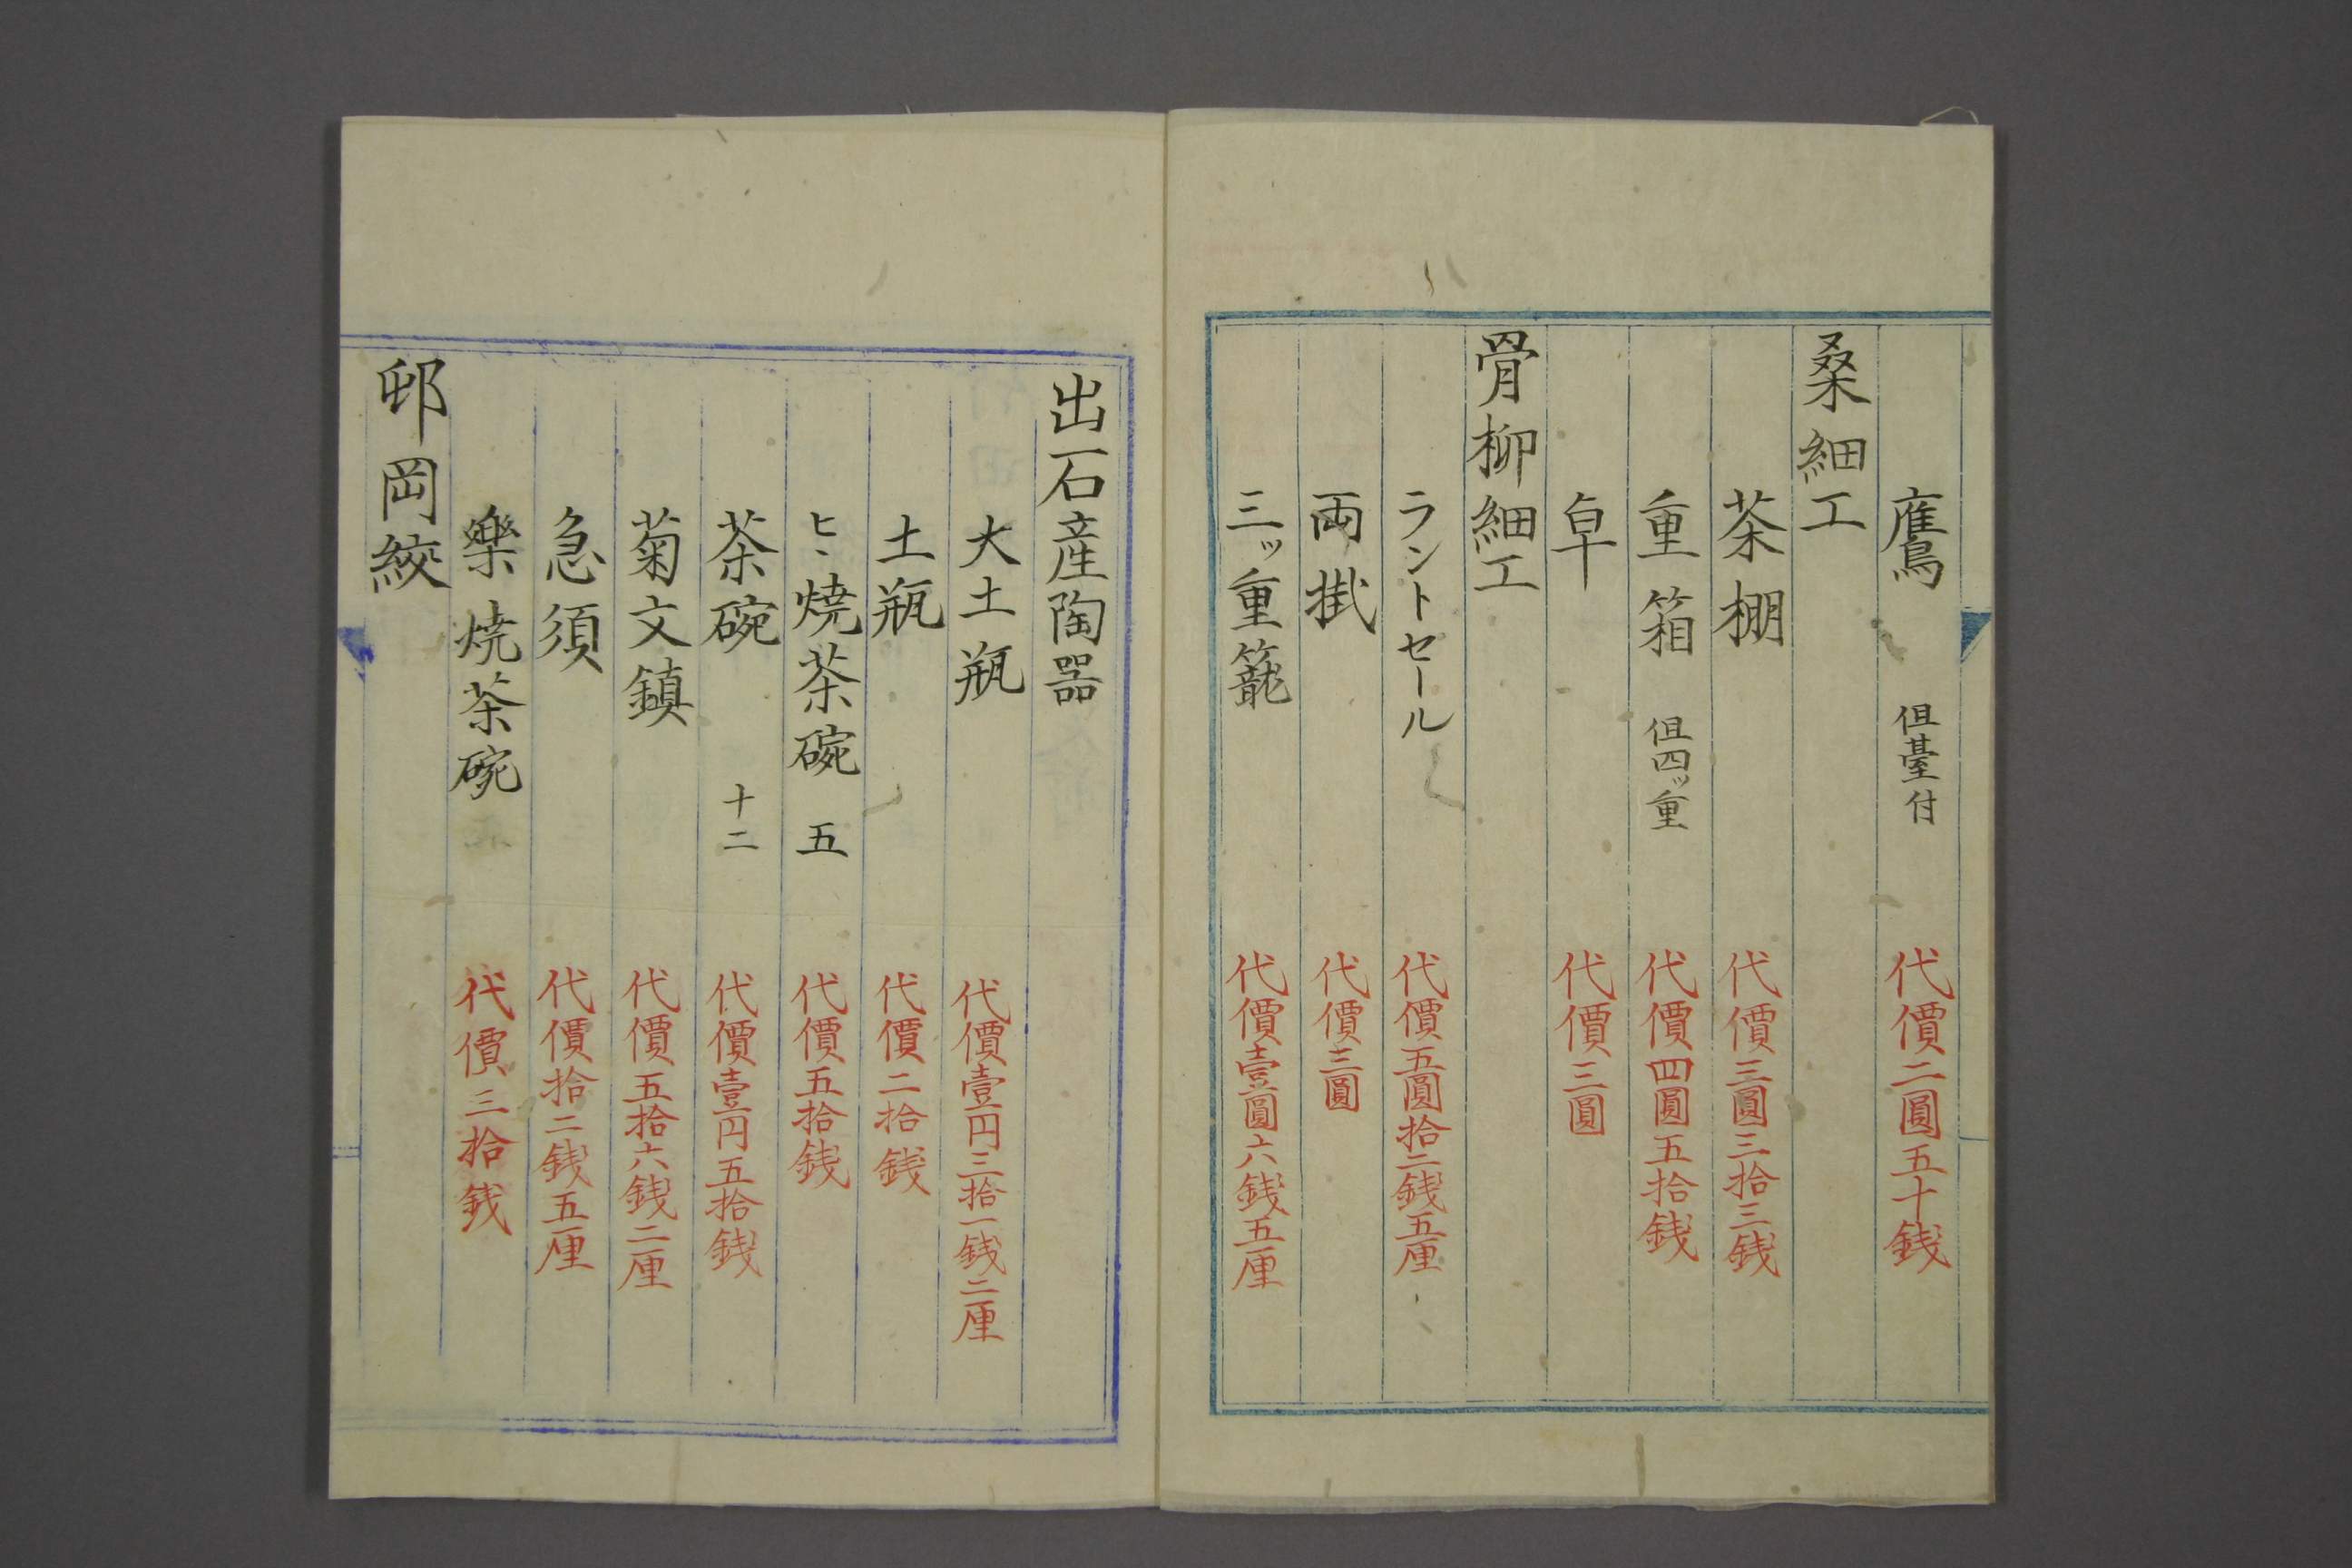 鷹 但臺付 代價二圓五十銭
桑細工
茶棚 代價三圓三拾三銭
重箱 但四ッ重 代價四圓五拾銭
卓 代價三圓
骨柳細工
ラントセール 代價五圓拾二銭五厘
両掛 代價三圓
三ッ重籠 代價壹圓六銭五厘
出石産陶器
大土瓶 代價壹円三拾一銭二厘
土瓶 代價二拾銭
ヒヽ焼茶碗 五 代價五拾銭
茶碗 十二 代價壹円五拾銭
菊文鎮 代價五拾六銭二厘
急須 代價拾二銭五厘
樂焼茶碗 代價三拾銭
邨岡絞